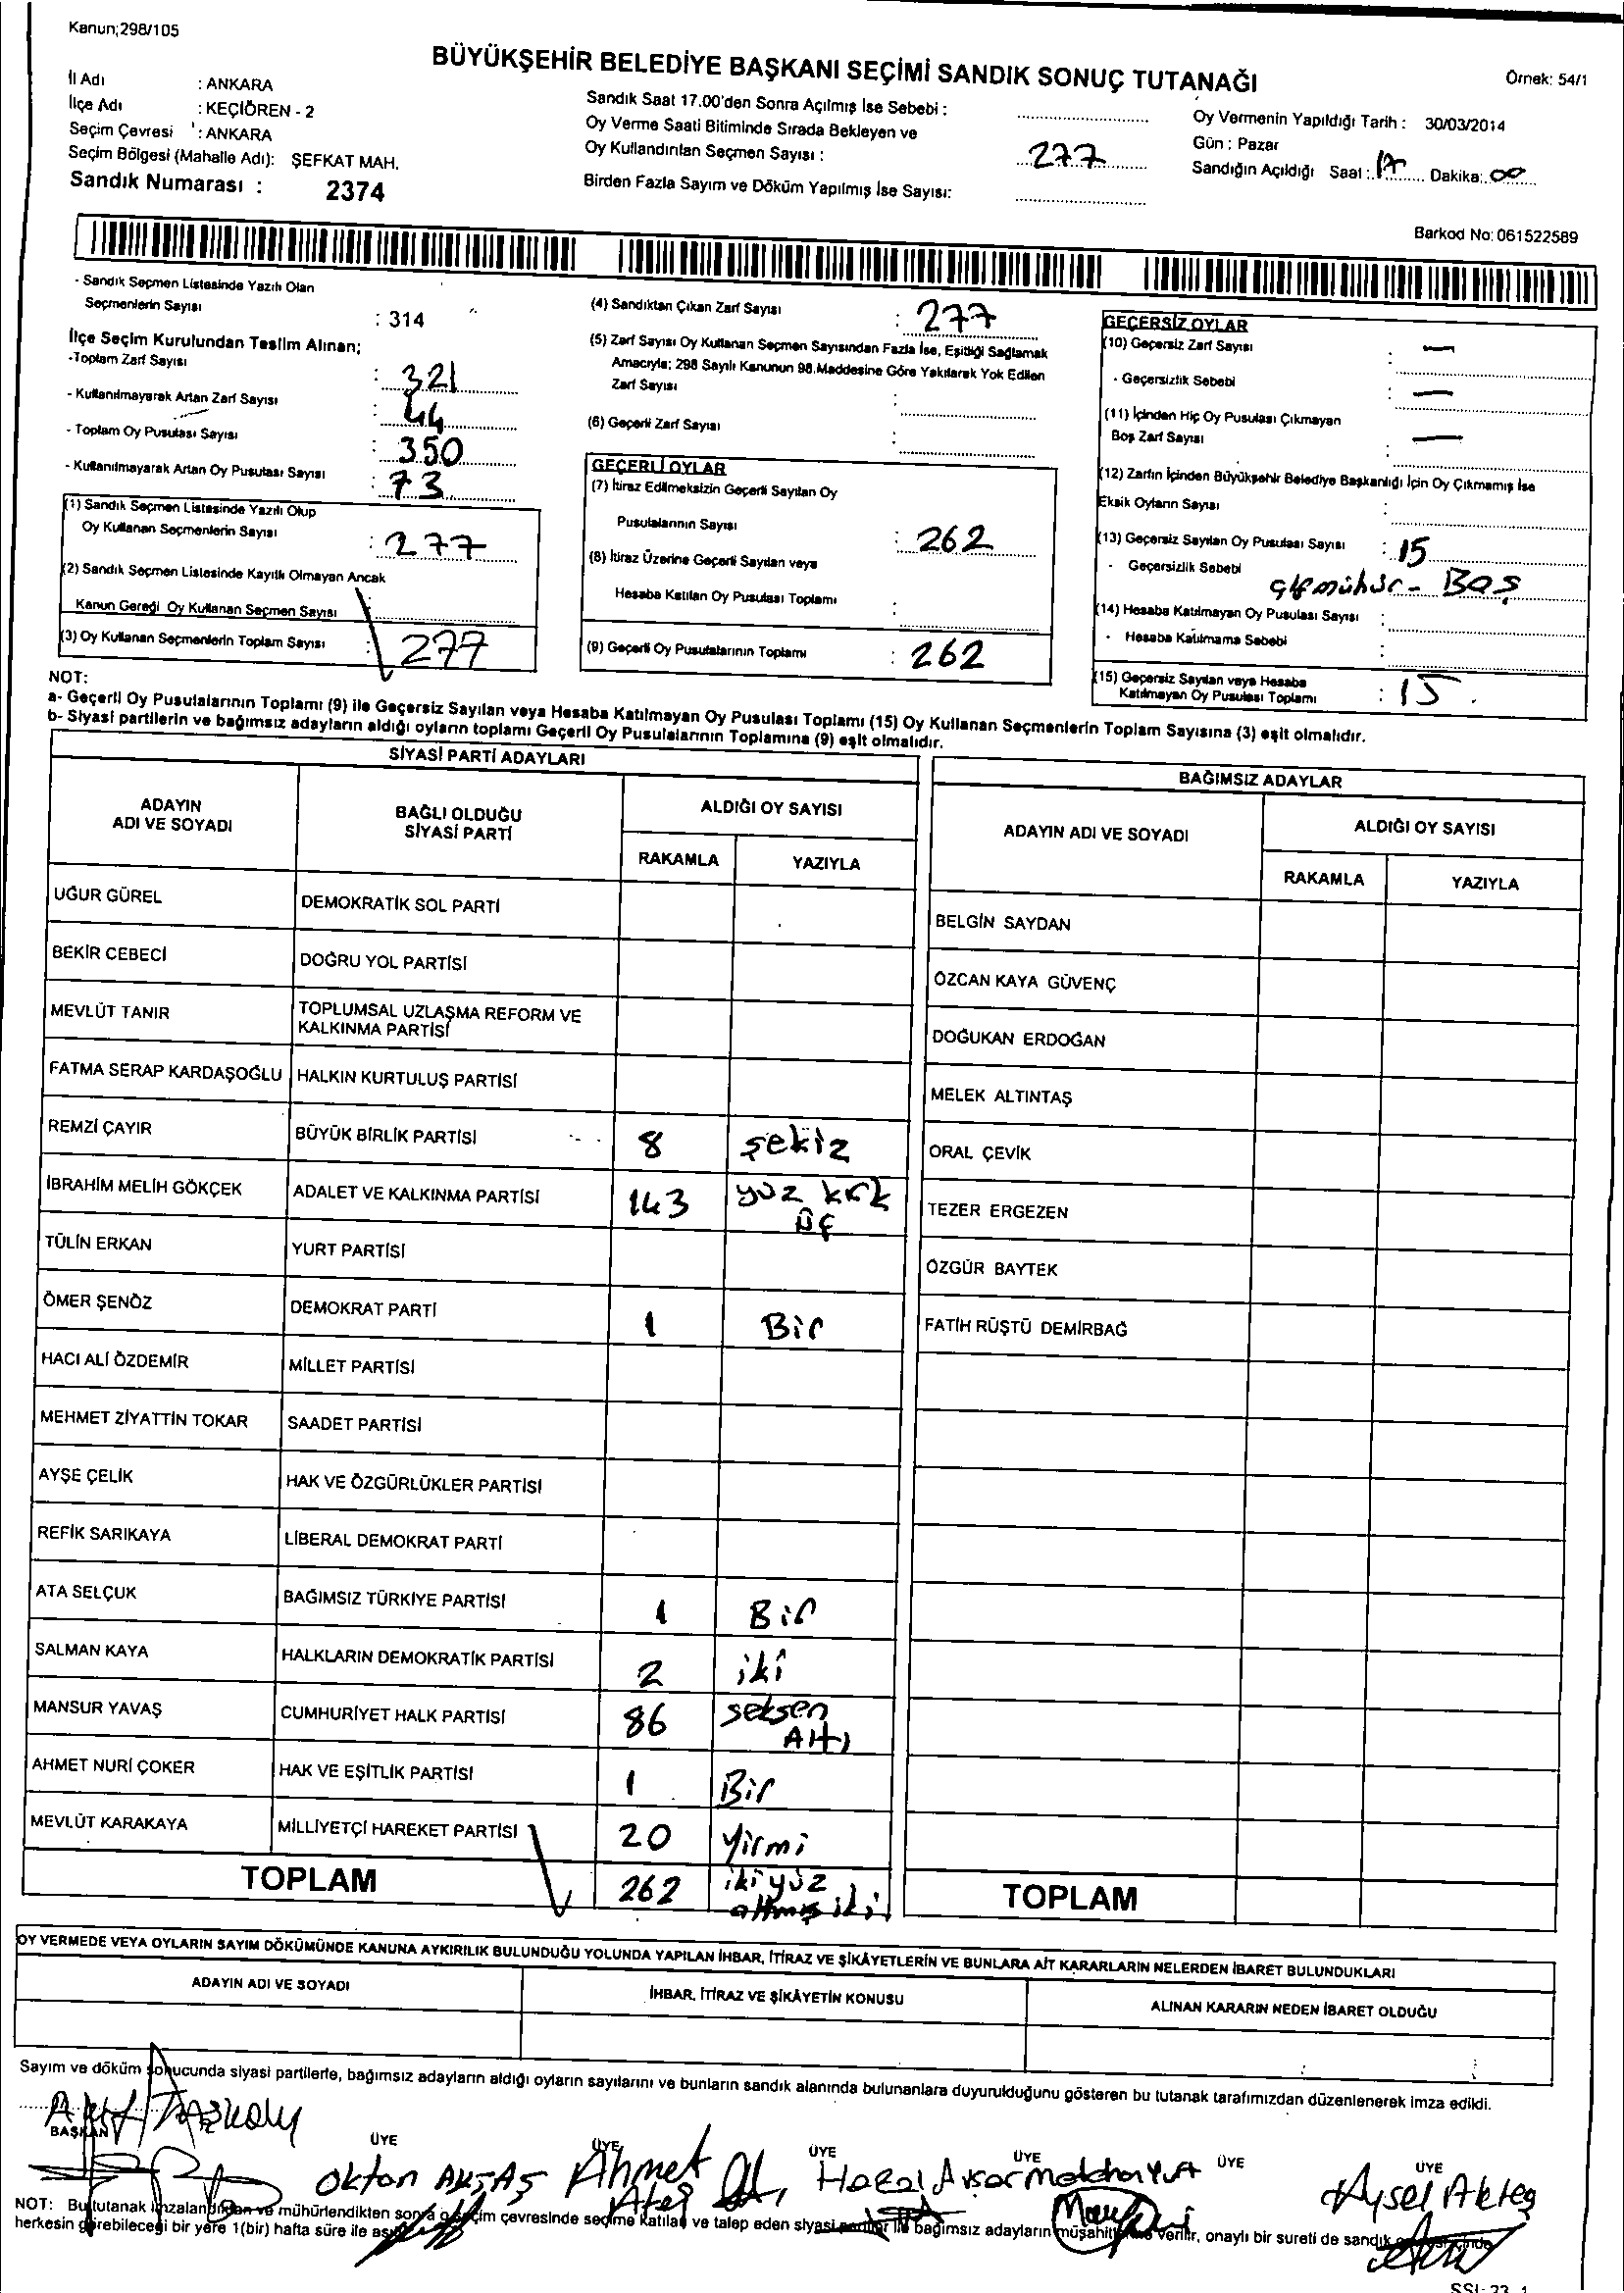 Kanun;298/105
BÜYÜKŞEHİR BELEDİYE BAŞKANI SEÇİMİ SANDIK SONUÇ TUTANAĞI
Örnek: 54/1
İl Adı : ANKARA
İlçe Adı : KEÇİÖREN - 2
Seçim Çevresi : ANKARA
Seçim Bölgesi (Mahalle Adı): ŞEFKAT MAH.
Sandık Numarası : 2374
Sandık Saat 17.00'den Sonra Açılmış İse Sebebi :
Oy Verme Saati Bitiminde Sırada Bekleyen ve
Oy Kullandırılan Seçmen Sayısı : 277
Birden Fazla Sayım ve Döküm Yapılmış İse Sayısı:
Oy Vermenin Yapıldığı Tarih : 30/03/2014
Gün : Pazar
Sandığın Açıldığı Saat : 17 Dakika: 00
Barkod No: 061522589
- Sandık Seçmen Listesinde Yazılı Olan
Seçmenlerin Sayısı : 314
İlçe Seçim Kurulundan Teslim Alınan;
-Toplam Zarf Sayısı : 321
- Kullanılmayarak Artan Zarf Sayısı : 44
- Toplam Oy Pusulası Sayısı : 350
- Kullanılmayarak Artan Oy Pusulası Sayısı : 73
(1) Sandık Seçmen Listesinde Yazılı Olup
Oy Kullanan Seçmenlerin Sayısı : 277
(2) Sandık Seçmen Listesinde Kayıtlı Olmayan Ancak
Kanun Gereği Oy Kullanan Seçmen Sayısı :
(3) Oy Kullanan Seçmenlerin Toplam Sayısı : 277
(4) Sandıktan Çıkan Zarf Sayısı : 277
(5) Zarf Sayısı Oy Kullanan Seçmen Sayısından Fazla İse, Eşitliği Sağlamak
Amacıyla; 298 Sayılı Kanunun 98.Maddesine Göre Yakılarak Yok Edilen
Zarf Sayısı :
(6) Geçerli Zarf Sayısı :
GEÇERLİ OYLAR
(7) İtiraz Edilmeksizin Geçerli Sayılan Oy
Pusulalarının Sayısı : 262
(8) İtiraz Üzerine Geçerli Sayılan veya
Hesaba Katılan Oy Pusulası Toplamı :
(9) Geçerli Oy Pusulalarının Toplamı : 262
GEÇERSİZ OYLAR
(10) Geçersiz Zarf Sayısı : —
- Geçersizlik Sebebi : —
(11) İçinden Hiç Oy Pusulası Çıkmayan
Boş Zarf Sayısı : —
(12) Zarfın İçinden Büyükşehir Belediye Başkanlığı İçin Oy Çıkmamış İse
Eksik Oyların Sayısı :
(13) Geçersiz Sayılan Oy Pusulası Sayısı : 15
- Geçersizlik Sebebi çift mühür - Boş
(14) Hesaba Katılmayan Oy Pusulası Sayısı :
- Hesaba Katılmama Sebebi :
(15) Geçersiz Sayılan veya Hesaba
Katılmayan Oy Pusulası Toplamı : 15
NOT:
a- Geçerli Oy Pusulalarının Toplamı (9) ile Geçersiz Sayılan veya Hesaba Katılmayan Oy Pusulası Toplamı (15) Oy Kullanan Seçmenlerin Toplam Sayısına (3) eşit olmalıdır.
b- Siyasi partilerin ve bağımsız adayların aldığı oyların toplamı Geçerli Oy Pusulalarının Toplamına (9) eşit olmalıdır.
SİYASİ PARTİ ADAYLARI
ADAYIN ADI VE SOYADI BAĞLI OLDUĞU SİYASİ PARTİ ALDIĞI OY SAYISI
RAKAMLA YAZIYLA
UĞUR GÜREL DEMOKRATİK SOL PARTİ
BEKİR CEBECİ DOĞRU YOL PARTİSİ
MEVLÜT TANIR TOPLUMSAL UZLAŞMA REFORM VE KALKINMA PARTİSİ
FATMA SERAP KARDAŞOĞLU HALKIN KURTULUŞ PARTİSİ
REMZİ ÇAYIR BÜYÜK BİRLİK PARTİSİ 8 şekiz
İBRAHİM MELİH GÖKÇEK ADALET VE KALKINMA PARTİSİ 143 yüz kırk üç
TÜLİN ERKAN YURT PARTİSİ
ÖMER ŞENÖZ DEMOKRAT PARTİ 1 Bir
HACI ALİ ÖZDEMİR MİLLET PARTİSİ
MEHMET ZİYATTİN TOKAR SAADET PARTİSİ
AYŞE ÇELİK HAK VE ÖZGÜRLÜKLER PARTİSİ
REFİK SARIKAYA LİBERAL DEMOKRAT PARTİ
ATA SELÇUK BAĞIMSIZ TÜRKİYE PARTİSİ 1 Bir
SALMAN KAYA HALKLARIN DEMOKRATİK PARTİSİ 2 iki
MANSUR YAVAŞ CUMHURİYET HALK PARTİSİ 86 seksen Altı
AHMET NURİ ÇOKER HAK VE EŞİTLİK PARTİSİ 1 Bir
MEVLÜT KARAKAYA MİLLİYETÇİ HAREKET PARTİSİ 20 Yirmi
TOPLAM 262 iki yüz altmış iki
BAĞIMSIZ ADAYLAR
ADAYIN ADI VE SOYADI ALDIĞI OY SAYISI
RAKAMLA YAZIYLA
BELGİN SAYDAN
ÖZCAN KAYA GÜVENÇ
DOĞUKAN ERDOĞAN
MELEK ALTINTAŞ
ORAL ÇEVİK
TEZER ERGEZEN
ÖZGÜR BAYTEK
FATİH RÜŞTÜ DEMİRBAĞ
TOPLAM
OY VERMEDE VEYA OYLARIN SAYIM DÖKÜMÜNDE KANUNA AYKIRILIK BULUNDUĞU YOLUNDA YAPILAN İHBAR, İTİRAZ VE ŞİKÂYETLERİN VE BUNLARA AİT KARARLARIN NELERDEN İBARET BULUNDUKLARI
ADAYIN ADI VE SOYADI İHBAR, İTİRAZ VE ŞİKÂYETİN KONUSU ALINAN KARARIN NEDEN İBARET OLDUĞU
Sayım ve döküm sonucunda siyasi partilerle, bağımsız adayların aldığı oyların sayılarını ve bunların sandık alanında bulunanlara duyurulduğunu gösteren bu tutanak tarafımızdan düzenlenerek imza edildi.
BAŞKAN ÜYE ÜYE ÜYE ÜYE ÜYE ÜYE
Oktan AKTAŞ Ahmet Ateş Aysel Akteş
NOT: Bu tutanak imzalandıktan ve mühürlendikten sonra seçim çevresinde seçime katılan ve talep eden siyasi partiler ile bağımsız adayların müşahitlerine verilir, onaylı bir sureti de sandık
herkesin görebileceği bir yere 1(bir) hafta süre ile